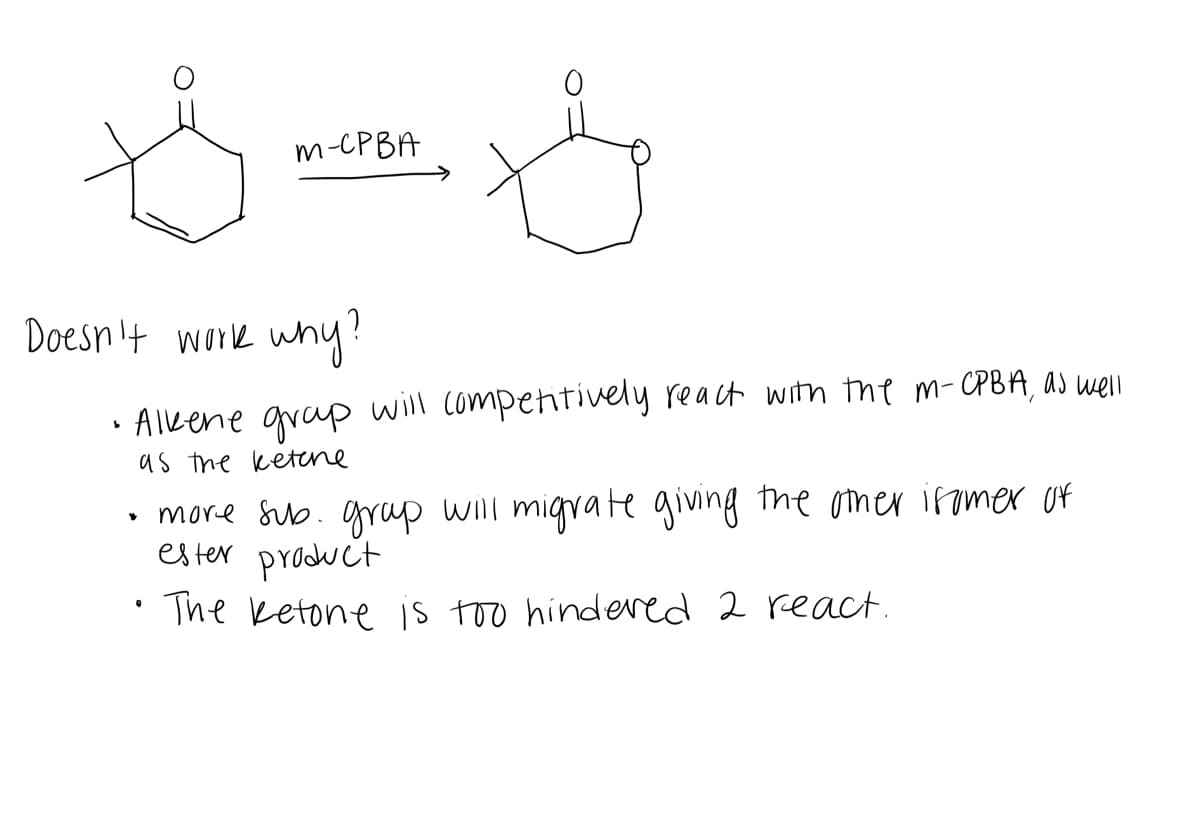 O
O
m-CPBA
O
Doesn't work why?
• Alkene group will competitively react with the m-CPBA, as well
as the ketone
• more sub. group will migrate giving the other isomer of
ester product
• The ketone is too hindered 2 react.